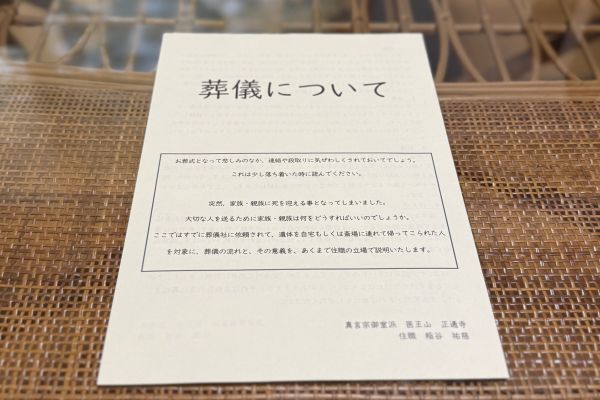 葬儀について
お葬式となって悲しみのなか、連絡や段取りに気ぜわしくされておいででしょう。
これは少し落ち着いた時に読んでください。
突然、家族・親族に死を迎える事となってしまいました。
大切な人を送るために家族・親族は何をどうすればいいのでしょうか。
ここではすでに葬儀社に依頼されて、遺体を自宅もしくは斎場に連れて帰ってこられた人
を対象に、葬儀の流れと、その意義を、あくまで住職の立場で説明いたします。
真言宗御室派 医王山 正通寺
住職 稲谷 祐慈